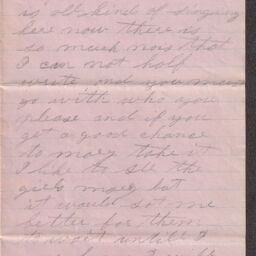 is all kind of singing
here now there is
so much nois that
I can not half
write and you may
go with who you
please and if you
get a good chance
to marry take it
I like to see the
girls marry but
it would sot me
better for them
to wait until I